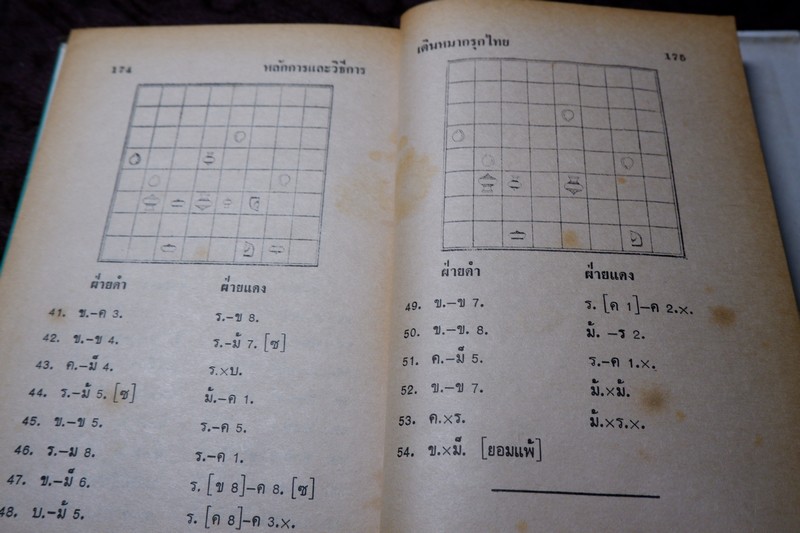 174 หลักการและวิธีการ
ฝ่ายดำ ฝ่ายแดง
41. ข.–ค 3. ร.–ข 8.
42. ข.–ข 4. ร.–ม้ 7. [ซ]
43. ค.–ม็ 4. ร.×บ.
44. ร.–ม้ 5. [ซ] ม้.–ค 1.
45. ข.–ข 5. ร.–ค 5.
46. ร.–ม 8. ร.–ค 1.
47. ข.–ม็ 6. ร. [ข 8]–ค 8. [ซ]
48. บ.–ม้ 5. ร. [ค 8]–ค 3.×.
เดินหมากรุกไทย 175
ฝ่ายดำ ฝ่ายแดง
49. ข.–ข 7. ร. [ค 1]–ค 2.×.
50. ข.–ข. 8. ม้. –ร 2.
51. ค.–ม็ 5. ร.–ค 1.×.
52. ข.–ข 7. ม้.×ม้.
53. ค.×ร. ม้.×ร.×.
54. ข.×ม็. [ยอมแพ้]